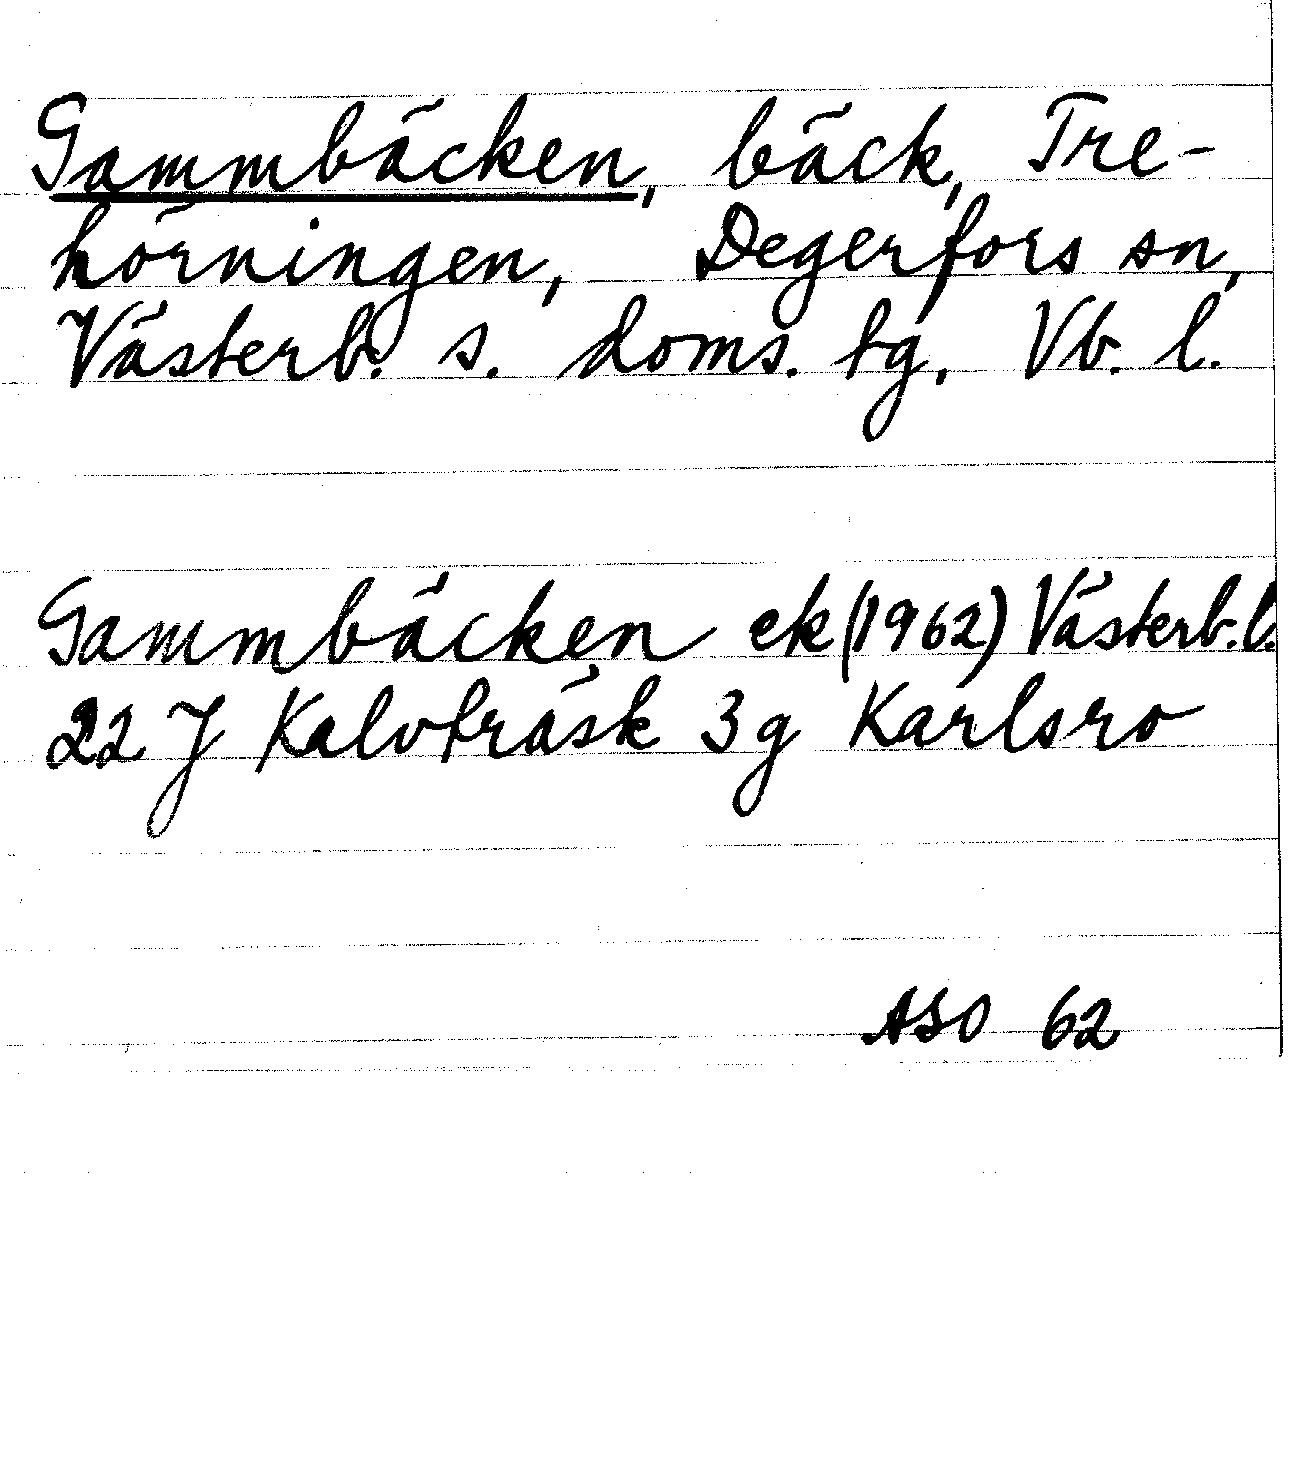 Gammbäcken, bäck, Tre-
hörningen, Degerfors sn,
Västerb. s. doms. tg. Vb. l.
Gammbäcken ek (1962) Västerb. l.
22 J Kalvträsk 3g Karlsro
ASO 62